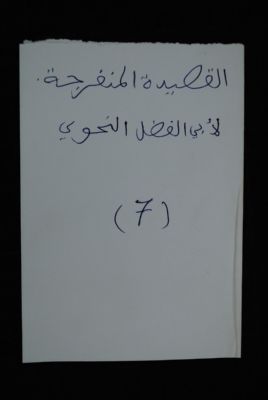 القصيدة المنفرجة.
لأبي الفضل النحوي
(7)